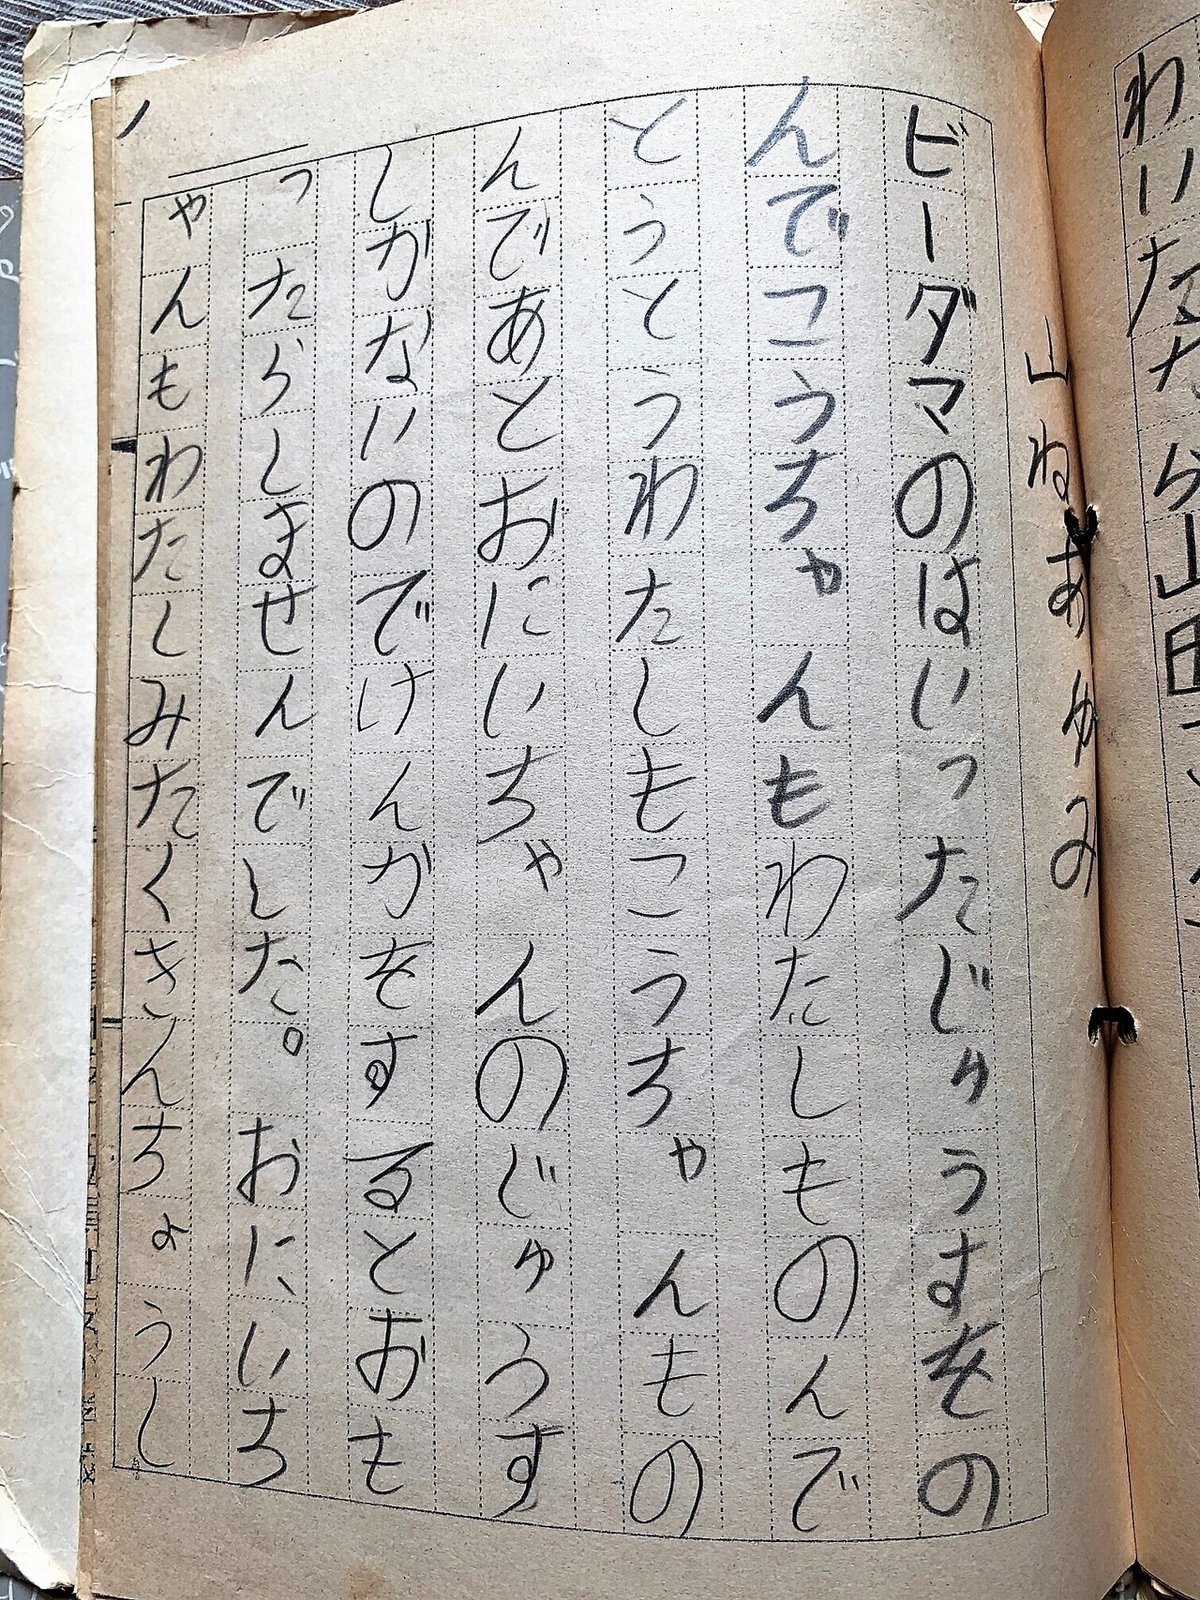 山ねあゆみ
ビーダマのはいったじゅうすをの
んでこうちゃんもわたしものんで
とうとうわたしもこうちゃんもの
んであとおにいちゃんのじゅうす
しかないのでけんかをするとおも
ったらしませんでした。おにいち
ゃんもわたしみたくきんちょうし